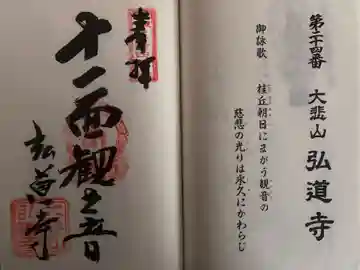 第二十四番 大悲山 弘道寺
御詠歌
桂丘朝日にまがう観音の
慈悲の光りは永久にかわらじ
奉拝
十一面観音
弘道寺